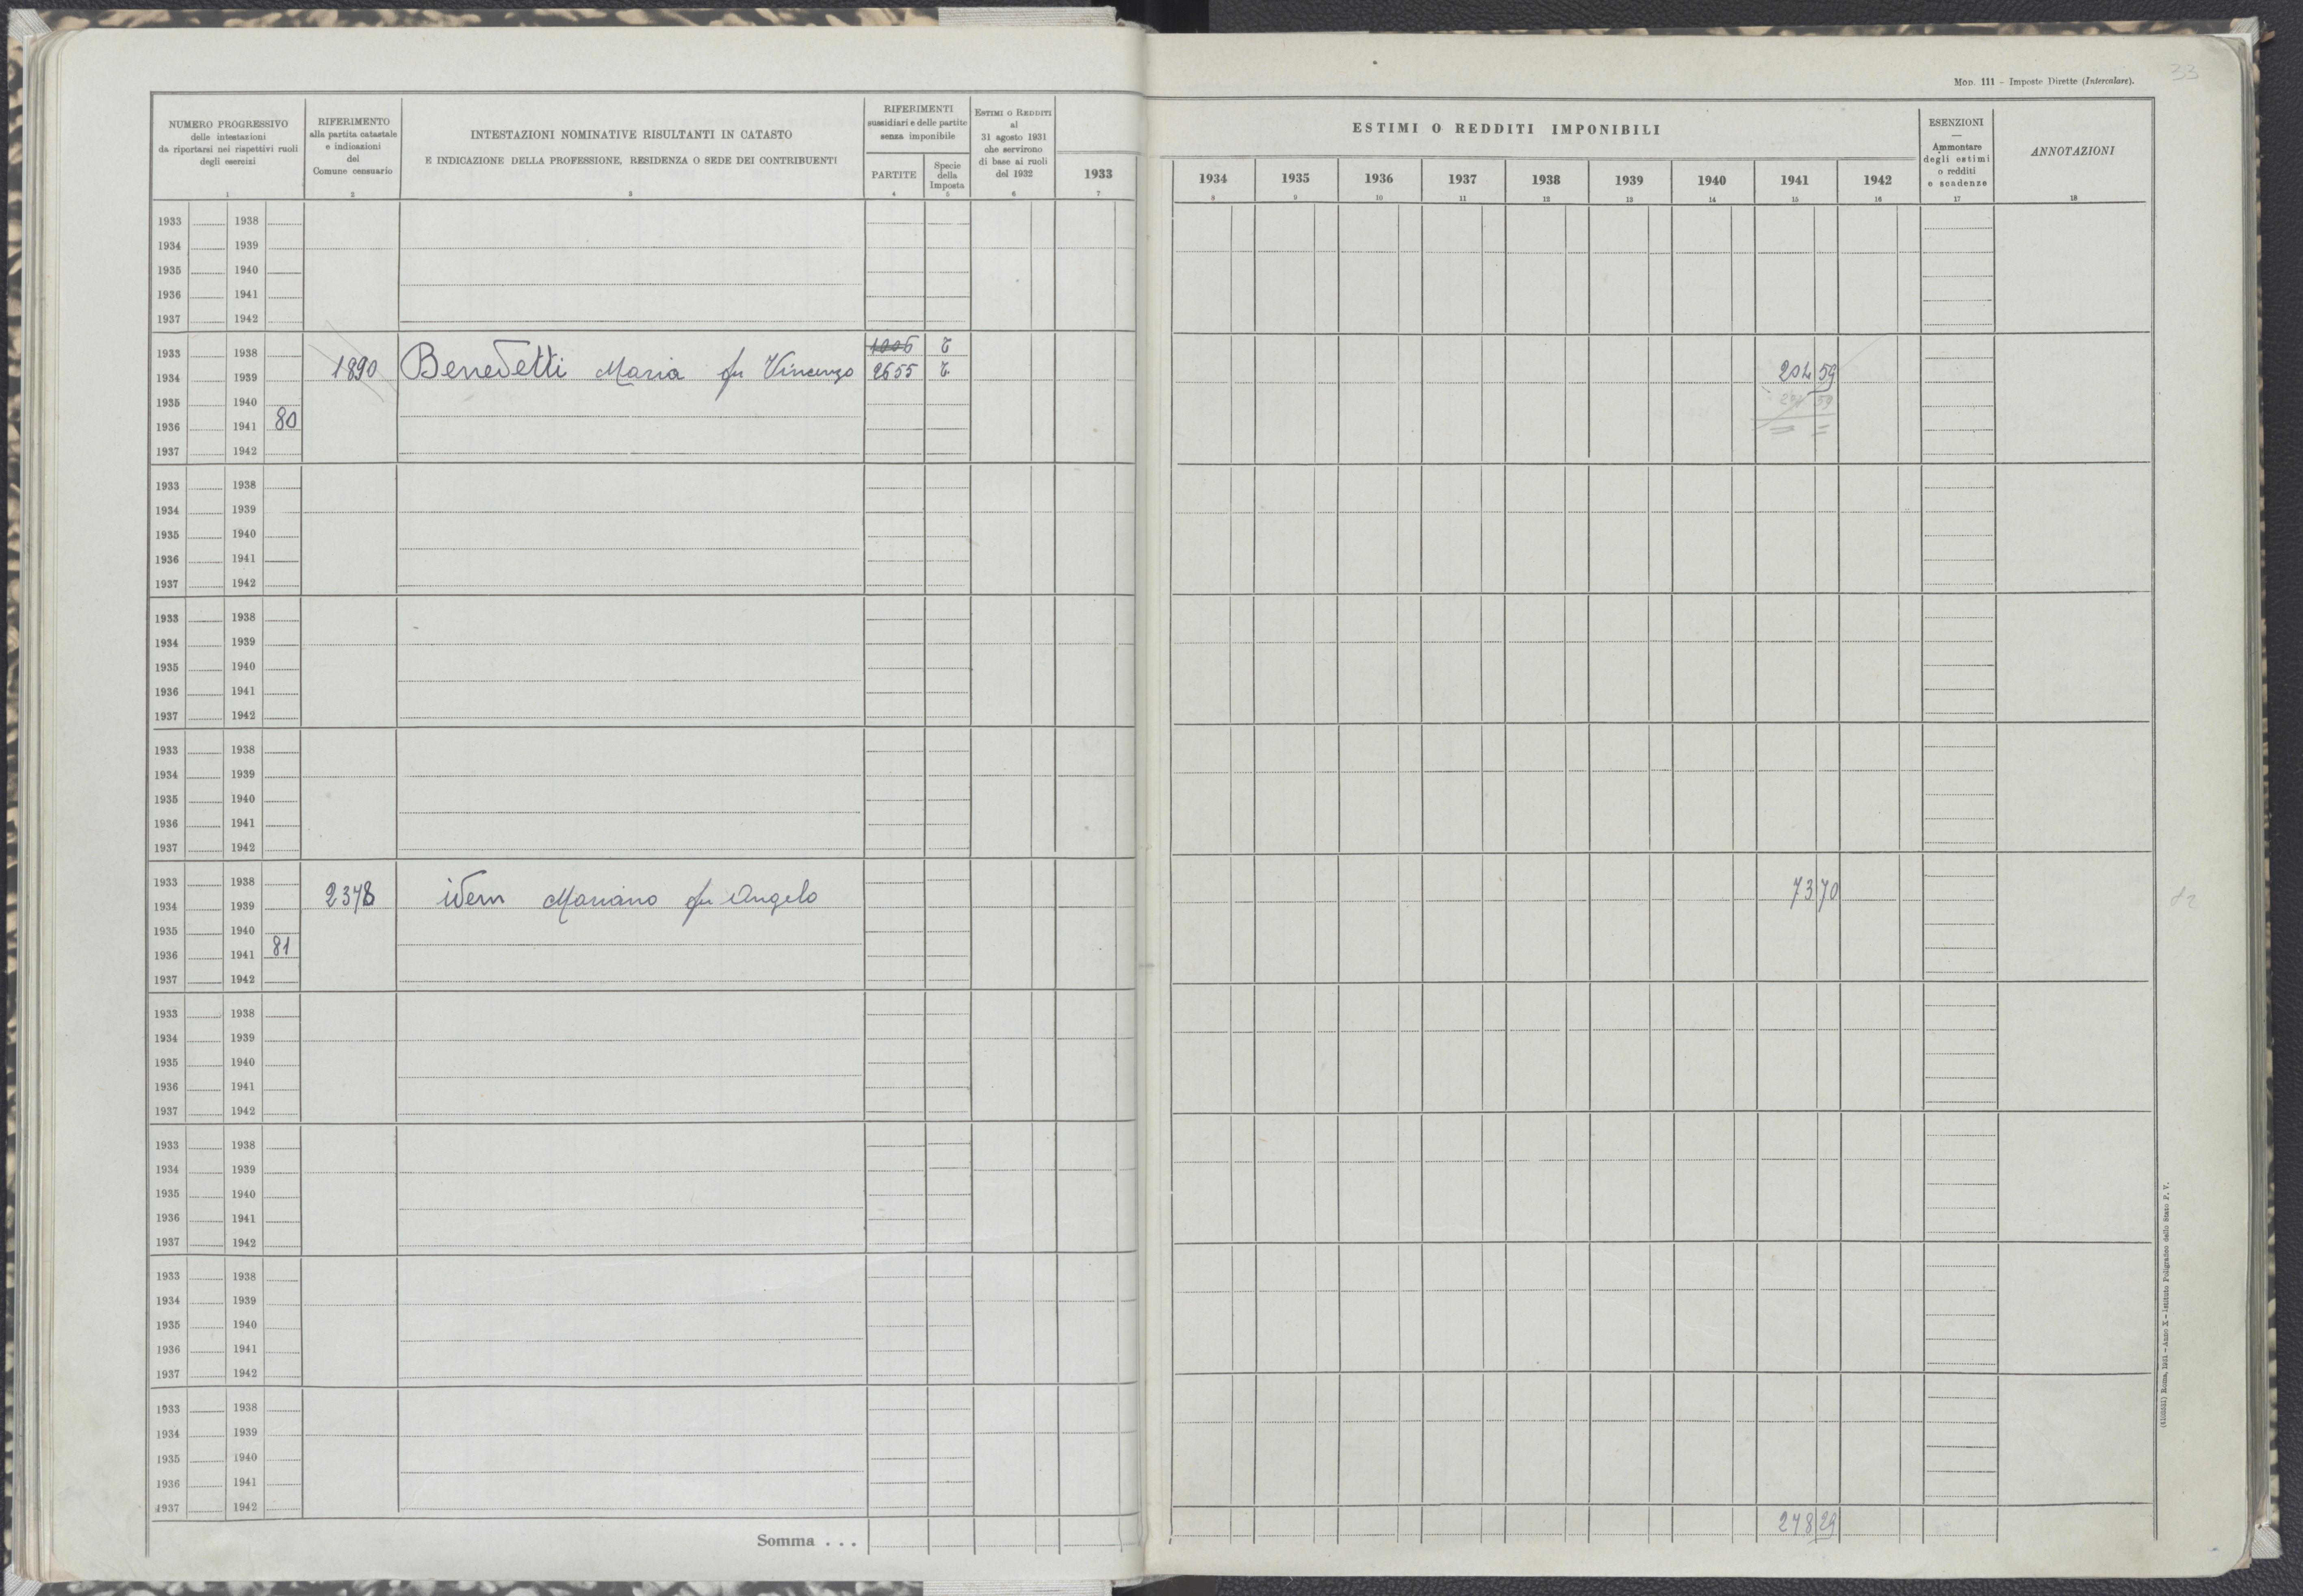 Mod. 111 - Imposte Dirette (Intercalare).
33
NUMERO PROGRESSIVO
delle intestazioni
da riportarsi nei rispettivi ruoli
degli esercizi
1
RIFERIMENTO
alla partita catastale
e indicazioni
del
Comune censuario
2
INTESTAZIONI NOMINATIVE RISULTANTI IN CATASTO
E INDICAZIONE DELLA PROFESSIONE, RESIDENZA O SEDE DEI CONTRIBUENTI
3
RIFERIMENTI
sussidiari e delle partite
senza imponibile
PARTITE
4
Specie
della
Imposta
5
ESTIMI O REDDITI
al
31 agosto 1931
che servirono
di base ai ruoli
del 1932
6
1933
7
ESTIMI O REDDITI IMPONIBILI
1934 1935 1936 1937 1938 1939 1940 1941 1942
8 9 10 11 12 13 14 15 16
ESENZIONI
—
Ammontare
degli estimi
o redditi
e scadenze
17
ANNOTAZIONI
18
1933 1938
1934 1939
1935 1940
1936 1941
1937 1942
1933 1938 1006 T
1934 1939 1890 Benedetti Maria fu Vincenzo 2655 T 204 59
1935 1940
1936 1941 80
1937 1942
1933 1938
1934 1939
1935 1940
1936 1941
1937 1942
1933 1938
1934 1939
1935 1940
1936 1941
1937 1942
1933 1938
1934 1939
1935 1940
1936 1941
1937 1942
1933 1938
1934 1939 2378 idem Mariano fu Angelo 73 70
1935 1940
1936 1941 81
1937 1942
1933 1938
1934 1939
1935 1940
1936 1941
1937 1942
1933 1938
1934 1939
1935 1940
1936 1941
1937 1942
1933 1938
1934 1939
1935 1940
1936 1941
1937 1942
1933 1938
1934 1939
1935 1940
1936 1941
1937 1942
Somma . . . 278 29